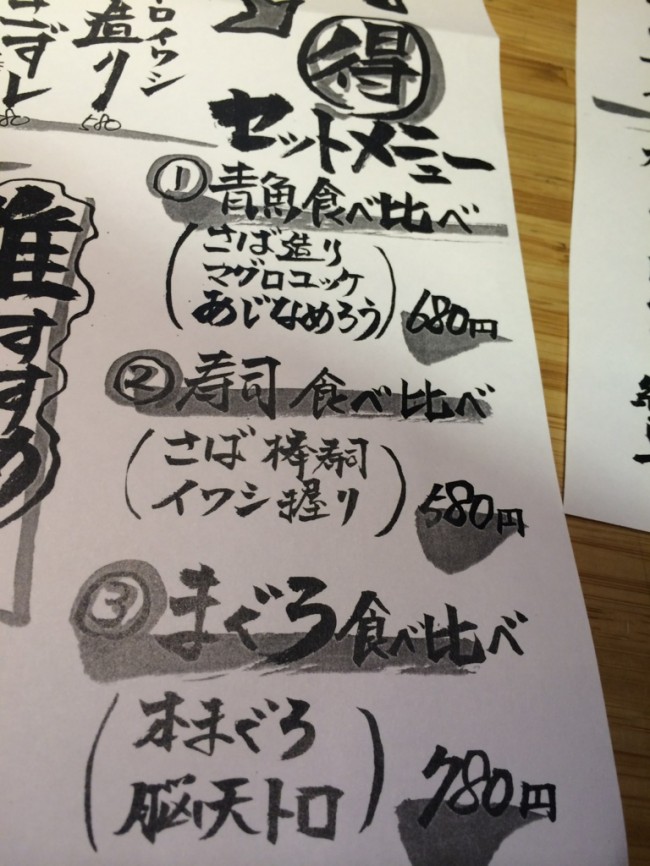 得
セットメニュー
① 青魚食べ比べ
(さば造り
マグロユッケ
あじなめろう) 680円
② 寿司 食べ比べ
(さば棒寿司
イワシ握り) 580円
③ まぐろ食べ比べ
(本まぐろ
脳天トロ) 780円
イワシ
造り
580
すすめ